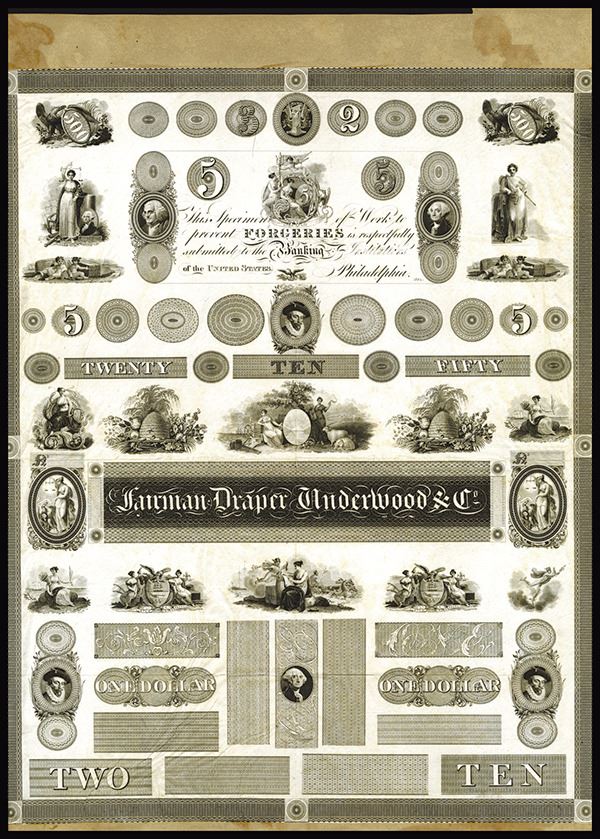 500 2 500
5 5
5
This Specimen of Work to
prevent FORGERIES is respectfully
submitted to the Banking Institutions
of the UNITED STATES. Philadelphia.
5 5
TWENTY TEN FIFTY
Fairman Draper Underwood & Co.
ONE DOLLAR ONE DOLLAR
TWO TEN